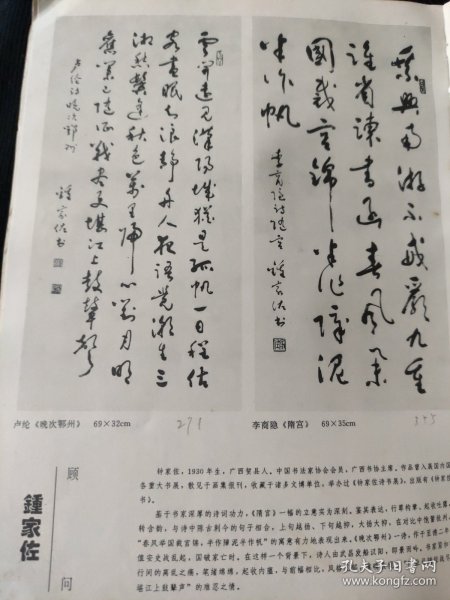 云开远见汉阳城犹是孤帆一日程估
客昼眠知浪静舟人夜语觉潮生三
湘愁鬓逢秋色万里归心对月明
旧业已随征战尽更堪江上鼓鼙声
卢纶诗晚次鄂州
钟家佐书
乘兴南游不戒严九重
谁省谏书函春风举
国裁宫锦半作障泥
半作帆
李商隐诗隋宫 钟家佐书
卢纶《晚次鄂州》 69×32cm
271
李商隐《隋宫》 69×35cm
355
顾问
鍾家佐
钟家佐，1930年生，广西贺县人。中国书法家协会会员，广西书协主席。作品曾入选国内国
各重大书展，散见于画集报刊，收藏于诸多文博单位，举办过《钟家佐诗书展》，出版有《钟家佐
书》。
基于书家深厚的诗词功力，《隋宫》一幅的立意实为深刻。鉴其表达，行草约掌、起收吐露
转含韵，与诗中陈古刺今的句子相合。上句越扬、下句越抑，大扬大抑。在对比中
“春风举国裁宫锦，半作障泥半作帆”的寓意有力地表现出来。《晚次鄂州》一诗，作于至德二
值安史战乱起，国破家亡时。在这样一个背景下，诗人由武昌发舶汉阳，即景而吟。书家
行间的离乱之痛，笔绪绵绵，起收内蕴，与前幅相比，
堪江上鼓鼙声”的难忍之情。
孔夫子旧书网